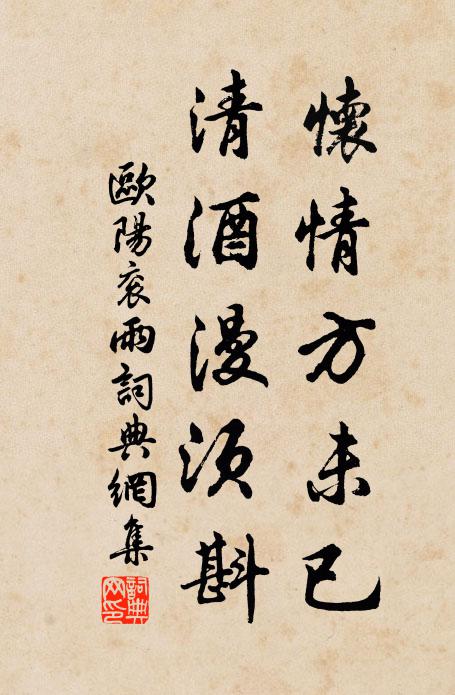 懷情方未已
清酒漫須斟
歐陽衮雨詞典網集
詞典網印